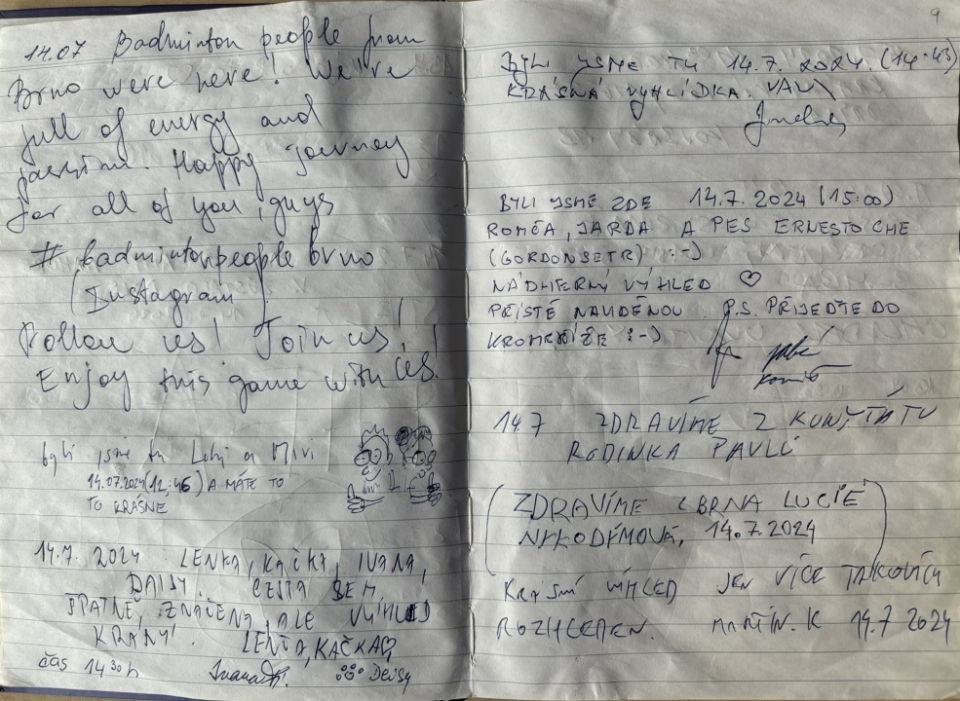 14.07 Badminton people from
Brno were here! We're
full of energy and
passion. Happy journey
for all of you, guys
# badmintonpeoplebrno
(Instagram)
Follow us! Join us!
Enjoy this game with us!
byli jsme tu Leki a Mivi
14.07.2024 (12:46) A MÁTE TO
TO KRÁSNE
14.7. 2024 LENKA, KAČKA, IVANA,
DAISY. CESTA SEM
ŠPATNĚ, ZNAČENA, ALE VÝHLED
KRÁSNÝ. LENČA, KAČKA,
čas 14 30 h Deisy
9
BYLI JSME TU 14.7. 2024. (14:43)
KRÁSNÁ VYHLÍDKA.
BYLI JSME ZDE 14.7. 2024 (15:00)
ROMČA, JARDA A PES ERNESTO CHE
(GORDONSETR) :-)
NÁDHERNÝ VÝHLED ♡
PŘÍSTĚ NAVDĚNOU. P.S. PŘIJEĎTE DO
KROMĚŘÍŽE :-)
14.7 ZDRAVÍME Z KUNŠTÁTU
RODINKA PAVLŮ
(ZDRAVÍME Z BRNA LUCIE
NIKODÉMOVÁ, 14.7.2024)
KRÁSNÝ VÝHLED JEN VÍCE TAKOVÝCH
ROZHLEDEN. MARTIN. K 14.7 2024